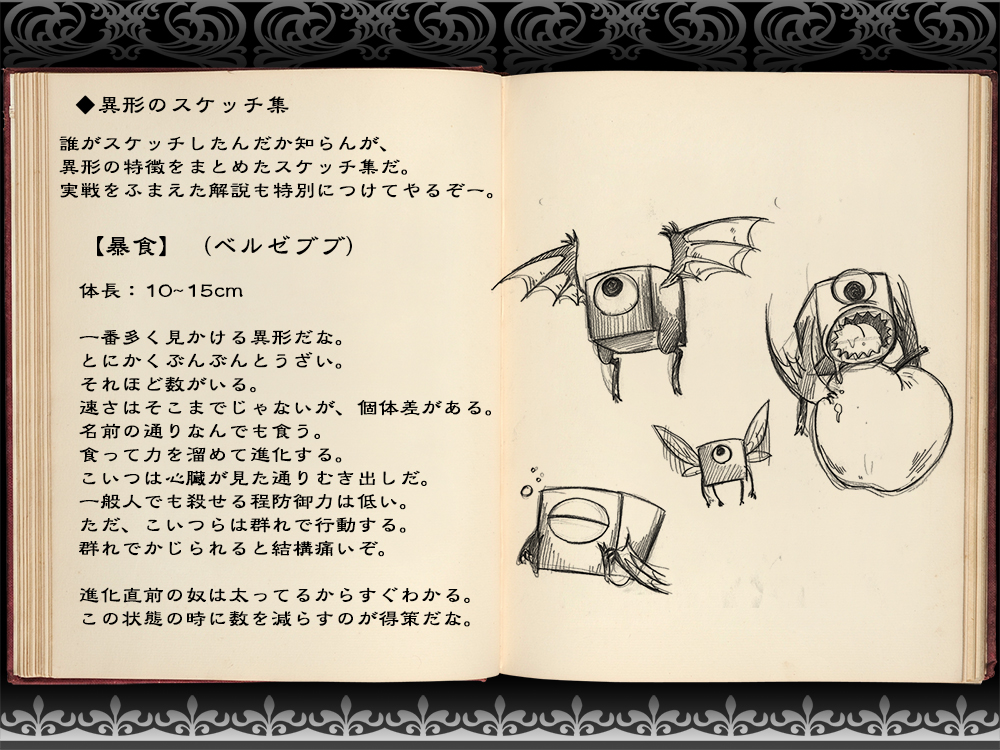 ◆異形のスケッチ集
誰がスケッチしたんだか知らんが、
異形の特徴をまとめたスケッチ集だ。
実戦をふまえた解説も特別につけてやるぞー。
【暴食】　（ベルゼブブ）
体長：10~15cm
一番多く見かける異形だな。
とにかくぶんぶんとうざい。
それほど数がいる。
速さはそこまでじゃないが、個体差がある。
名前の通りなんでも食う。
食って力を溜めて進化する。
こいつは心臓が見た通りむき出しだ。
一般人でも殺せる程防御力は低い。
ただ、こいつらは群れで行動する。
群れでかじられると結構痛いぞ。
進化直前の奴は太ってるからすぐわかる。
この状態の時に数を減らすのが得策だな。